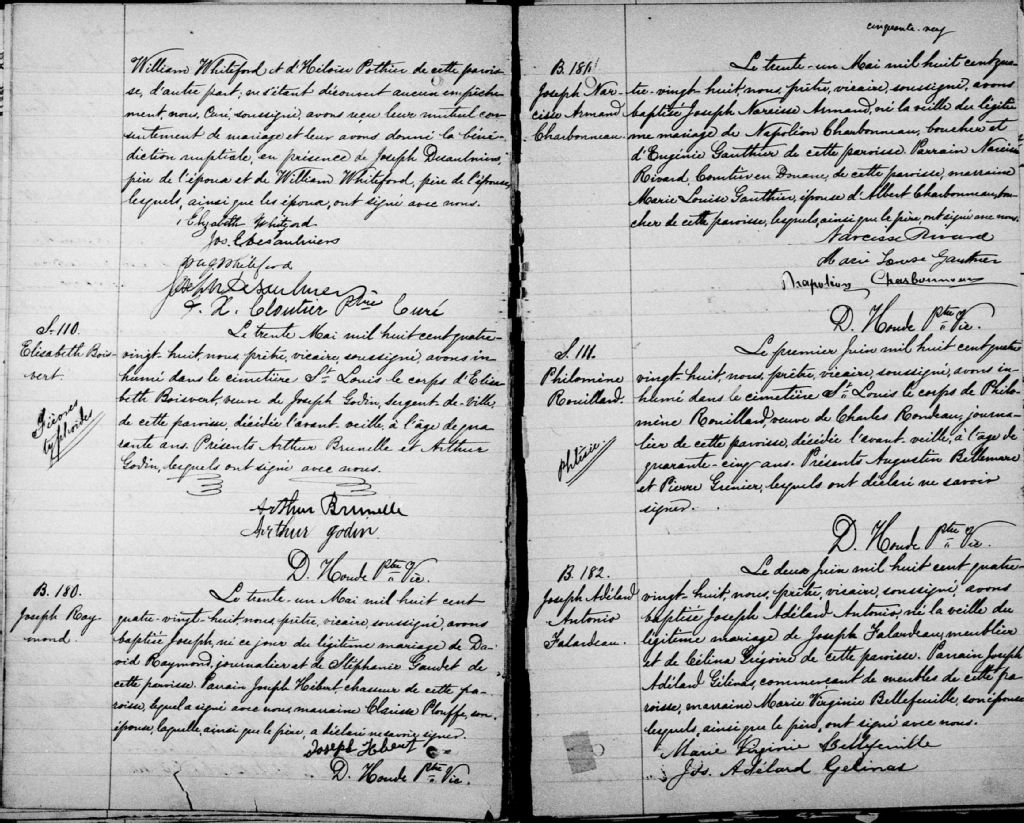 William Whiteford et d'Héloïse Pothier de cette parois-
se, d'autre part; ne s'étant découvert aucun empêche-
ment, nous, Curé, soussigné, avons reçu leur mutuel con-
sentement de mariage et leur avons donné la béné-
diction nuptiale, en présence de Joseph Desaulniers,
père de l'époux et de William Whiteford, père de l'épouse,
lesquels, ainsi que les époux, ont signé avec nous.
Elizabeth Whiteford
Jos. Desaulniers
Whiteford
Joseph Desaulniers
F. X. Cloutier Ptre Curé
S. 110.
Elisabeth Bois-
vert.
Fièvres
typhoïdes
Le trente Mai mil huit cent quatre-
vingt-huit, nous, prêtre, vicaire, soussigné, avons in-
humé dans le cimetière St Louis le corps d'Elisa-
beth Boisvert, veuve de Joseph Godin, sergent de ville,
de cette paroisse, décédée l'avant-veille, à l'âge de qua-
rante ans. Présents Arthur Brunelle et Arthur
Godin, lesquels ont signé avec nous.
Arthur Brunelle
Arthur godin
D. Houde Ptre Vic.
B. 180.
Joseph Ray-
mond.
Le trente-un Mai mil huit cent
quatre-vingt-huit, nous, prêtre, vicaire, soussigné, avons
baptisé Joseph, né ce jour du légitime mariage de Da-
vid Raymond, journalier et de Stéphanie Gaudet de
cette paroisse. Parrain Joseph Hébert, chasseur de cette pa-
roisse, lequel a signé avec nous, marraine Clarisse Plouffe, son
épouse, laquelle, ainsi que le père, a déclaré ne savoir signer.
Joseph Hebert
D. Houde Ptre Vic.
cinquante-neuf
B. 181
Joseph Nar-
cisse Armand
Charbonneau
Le trente-un Mai mil huit cent qua-
tre-vingt-huit, nous, prêtre, vicaire, soussigné, avons
baptisé Joseph Narcisse Armand, né la veille du légiti-
me mariage de Napoléon Charbonneau, boucher et
d'Eugénie Gauthier de cette paroisse. Parrain Narcisse
Rivard, Courtier en Douane, de cette paroisse, marraine
Marie Louise Gauthier, épouse d'Albert Charbonneau, bou-
cher de cette paroisse, lesquels, ainsi que le père, ont signé avec nous.
Narcisse Rivard
Marie Louise Gauthier
Napoléon Charbonneau
D. Houde Ptre Vic.
S. 111.
Philomène
Rouillard.
phtisie
Le premier Juin mil huit cent quatre
vingt-huit, nous, prêtre, vicaire, soussigné, avons in-
humé dans le cimetière St Louis le corps de Philo-
mène Rouillard, veuve de Charles Rondeau, journa-
lier de cette paroisse, décédée l'avant-veille, à l'âge de
quarante-cinq ans. Présents Augustin Bellemare
et Pierre Grenier, lesquels ont déclaré ne savoir
signer.
D. Houde Ptre Vic.
B. 182.
Joseph Adélard
Antonio
Falardeau.
Le deux Juin mil huit cent quatre-
vingt-huit, nous, prêtre, vicaire, soussigné, avons
baptisé Joseph Adélard Antonio, né la veille du
légitime mariage de Joseph Falardeau, meublier
et de Célina Grégoire de cette paroisse. Parrain Joseph
Adélard Gélinas, commerçant de meubles de cette pa-
roisse, marraine Marie Virginie Bellefeuille, son épouse
lesquels, ainsi que le père, ont signé avec nous.
Marie Virginie Bellefeuille
Jos. Adélard Gelinas